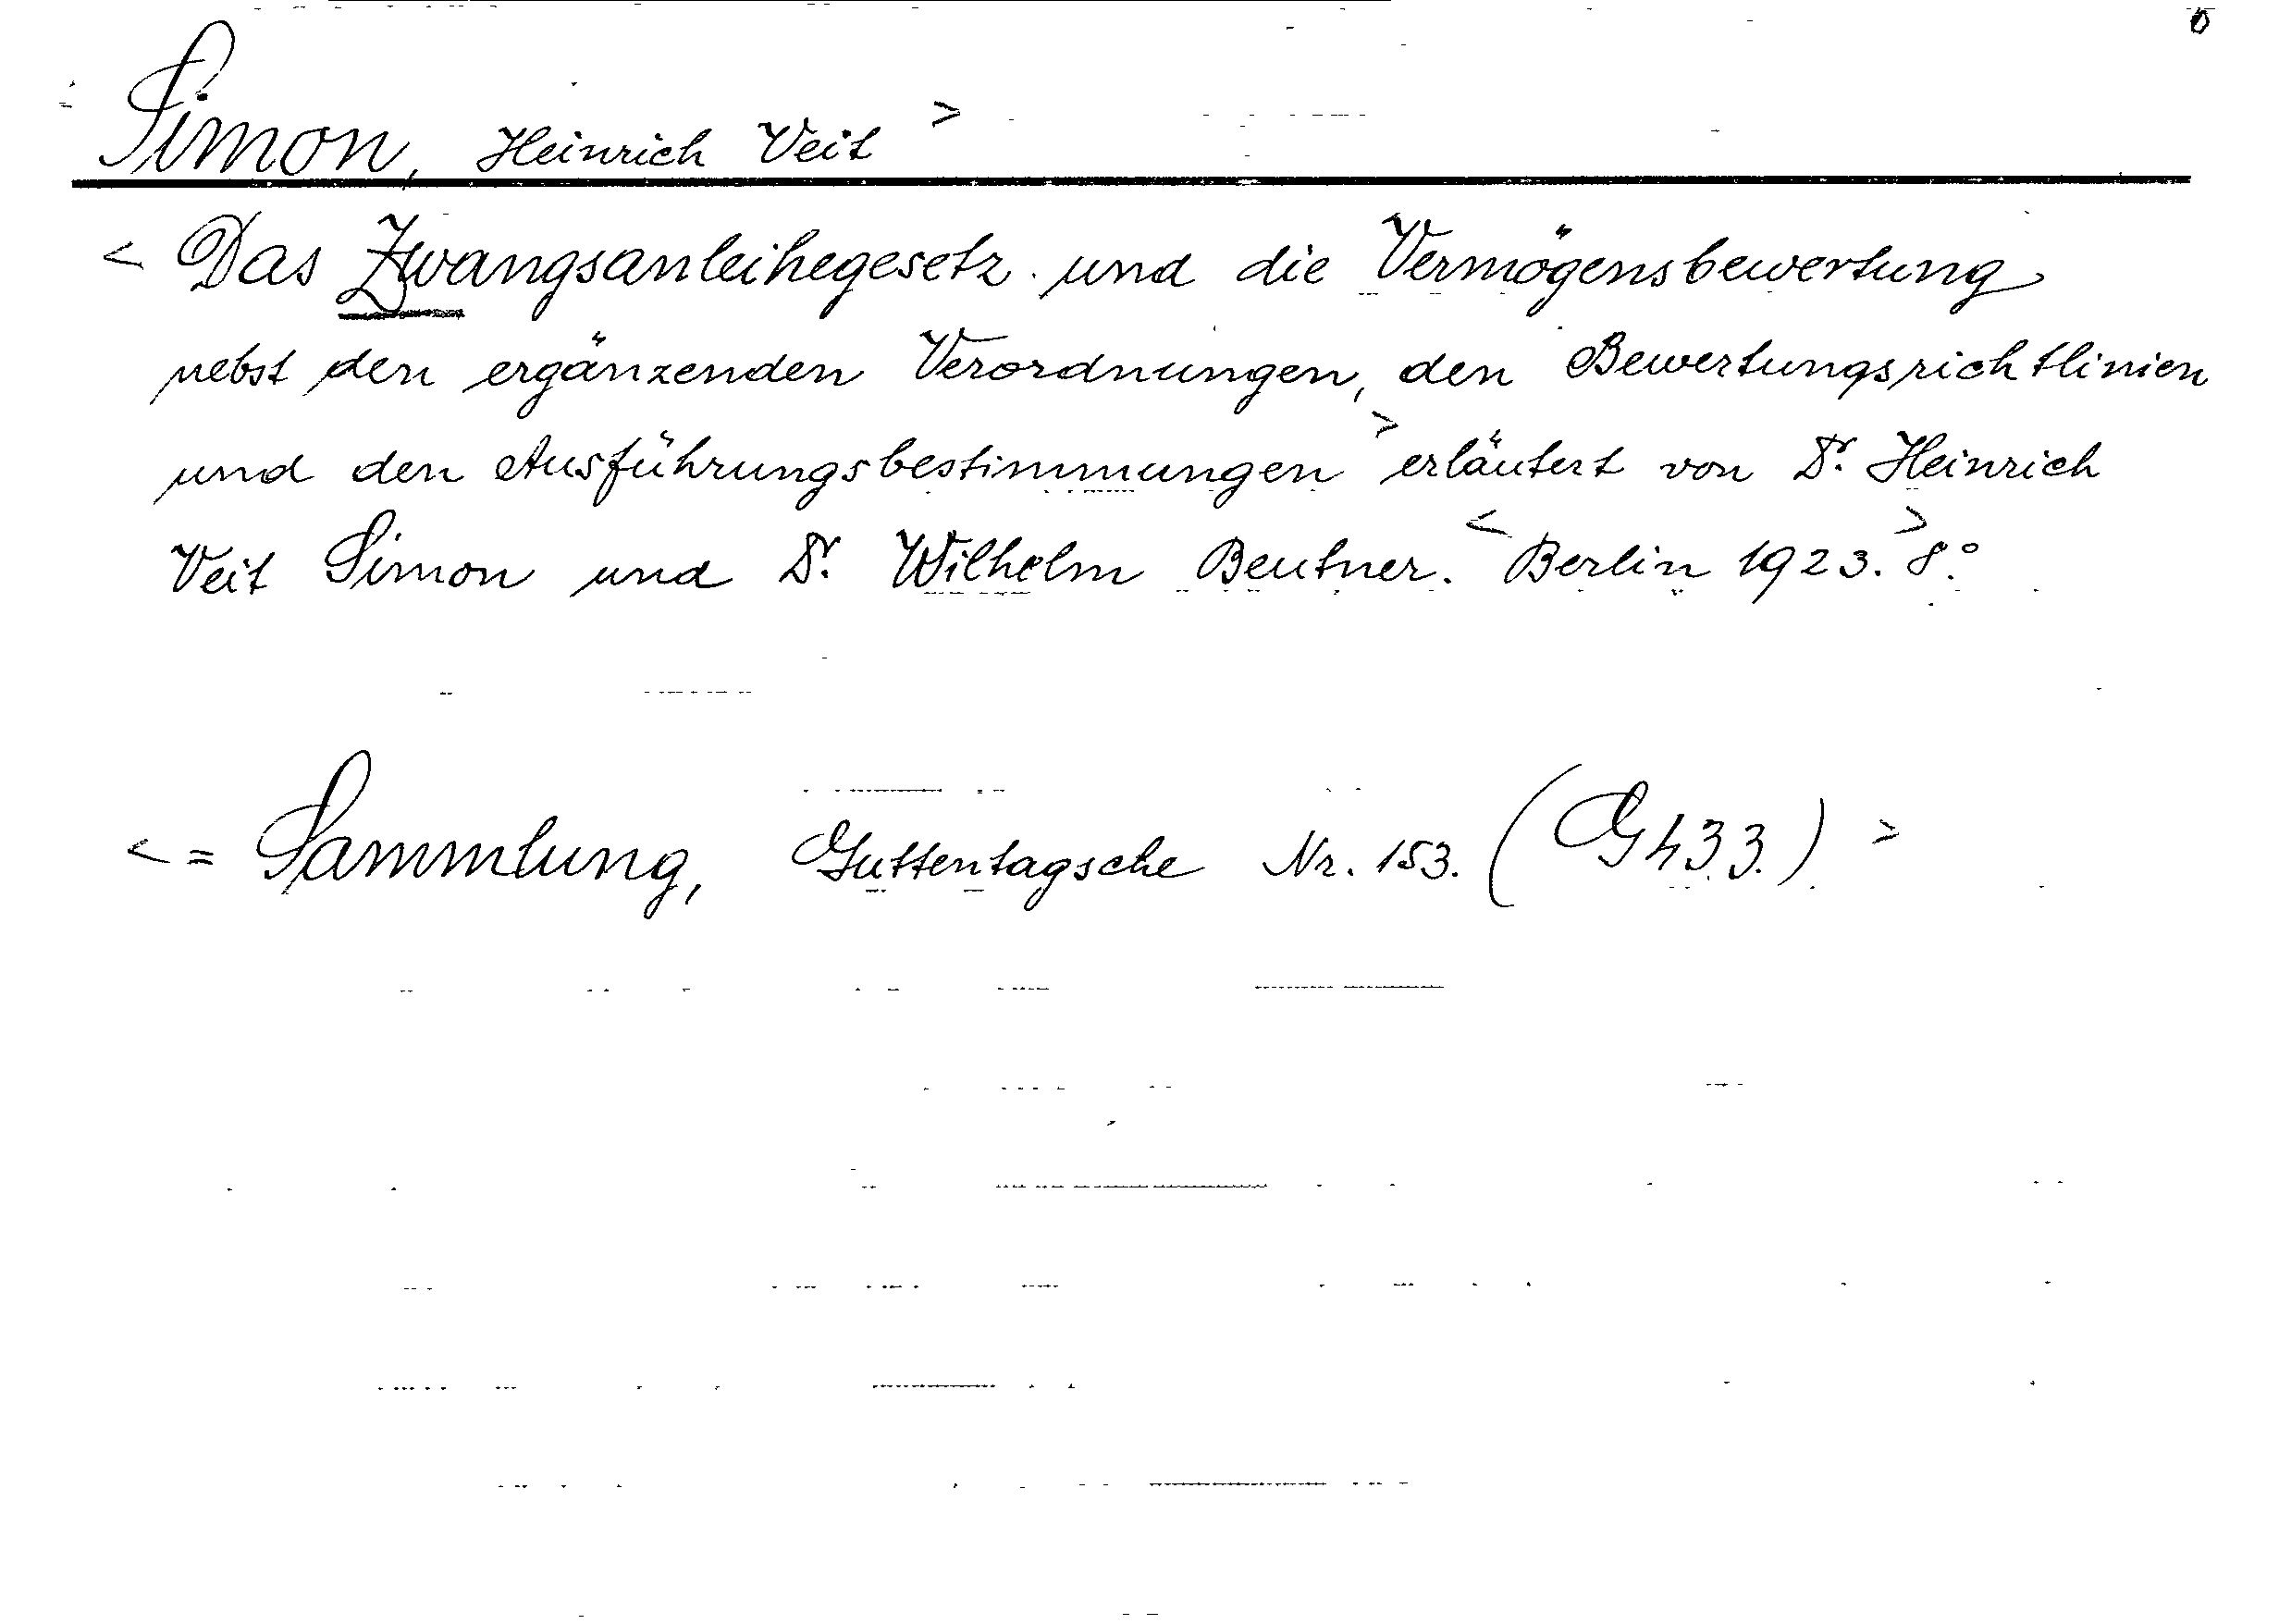 Simon, Heinrich Veit >
< Das Zwangsanleihegesetz und die Vermögensbewertung
nebst den ergänzenden Verordnungen, den Bewertungsrichtlinien
und den Ausführungsbestimmungen > erläutert von Dr. Heinrich
Veit Simon und Dr. Wilhelm Beutner. < Berlin 1923. > 8.°
< = Sammlung, Guttentagsche Nr. 153. (G433.) >